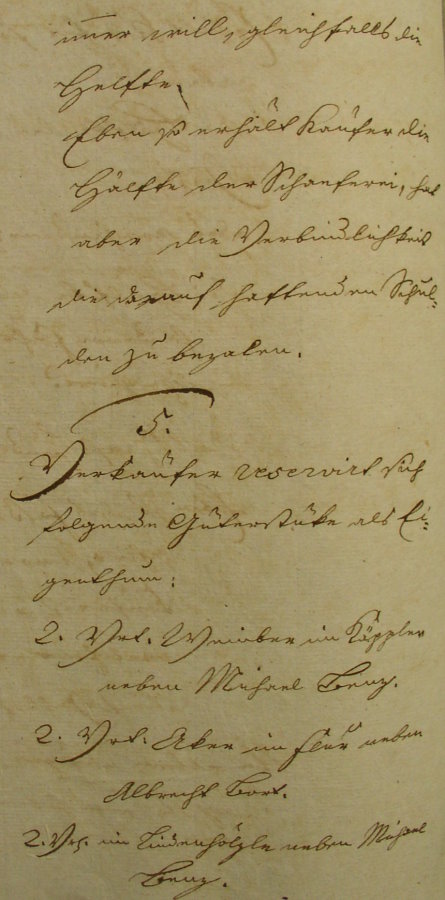 immer will, gleichfalls die
Helfte.
Eben so erhält Kaufer die
Hälfte der Schaeferei, hat
aber die Verbindlichkeit
die darauf haftenden Schul-
den zu bezalen.
5.
Verkäufer reservirt sich
folgende Güterstüke als Ei-
genthum:
2. Vrt. Weinber im Käppler
neben Michael Benz.
2. Vrt. Aker im Flur neben
Albrecht Bort.
2. Vrt. im Lindenhölzle neben Michael
Benz.